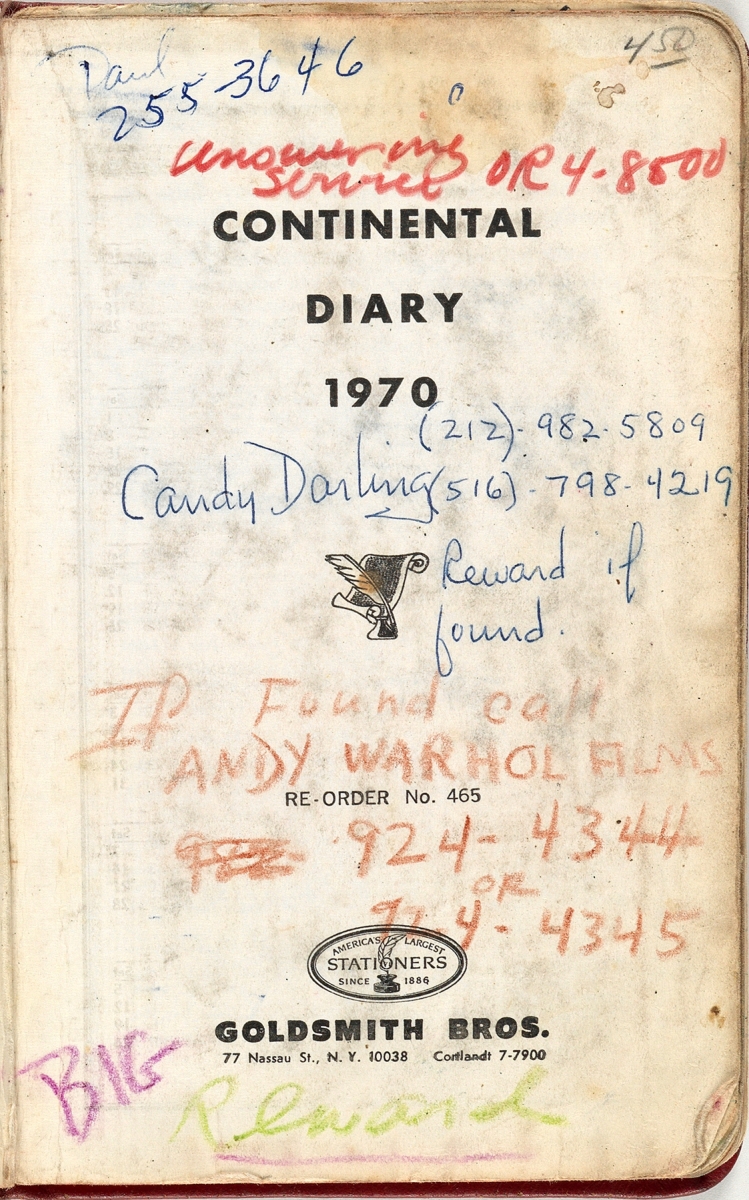 450
Paul
255-3646
answering
service OR 4-8500
CONTINENTAL
DIARY
1970
(212)-982-5809
Candy Darling (516)-798-4219
Reward if
found.
If Found call
ANDY WARHOL FILMS
RE-ORDER No. 465
924-4344
OR
924-4345
AMERICA'S LARGEST
STATIONERS
SINCE 1886
GOLDSMITH BROS.
77 Nassau St., N. Y. 10038 Cortlandt 7-7900
BIG
Reward